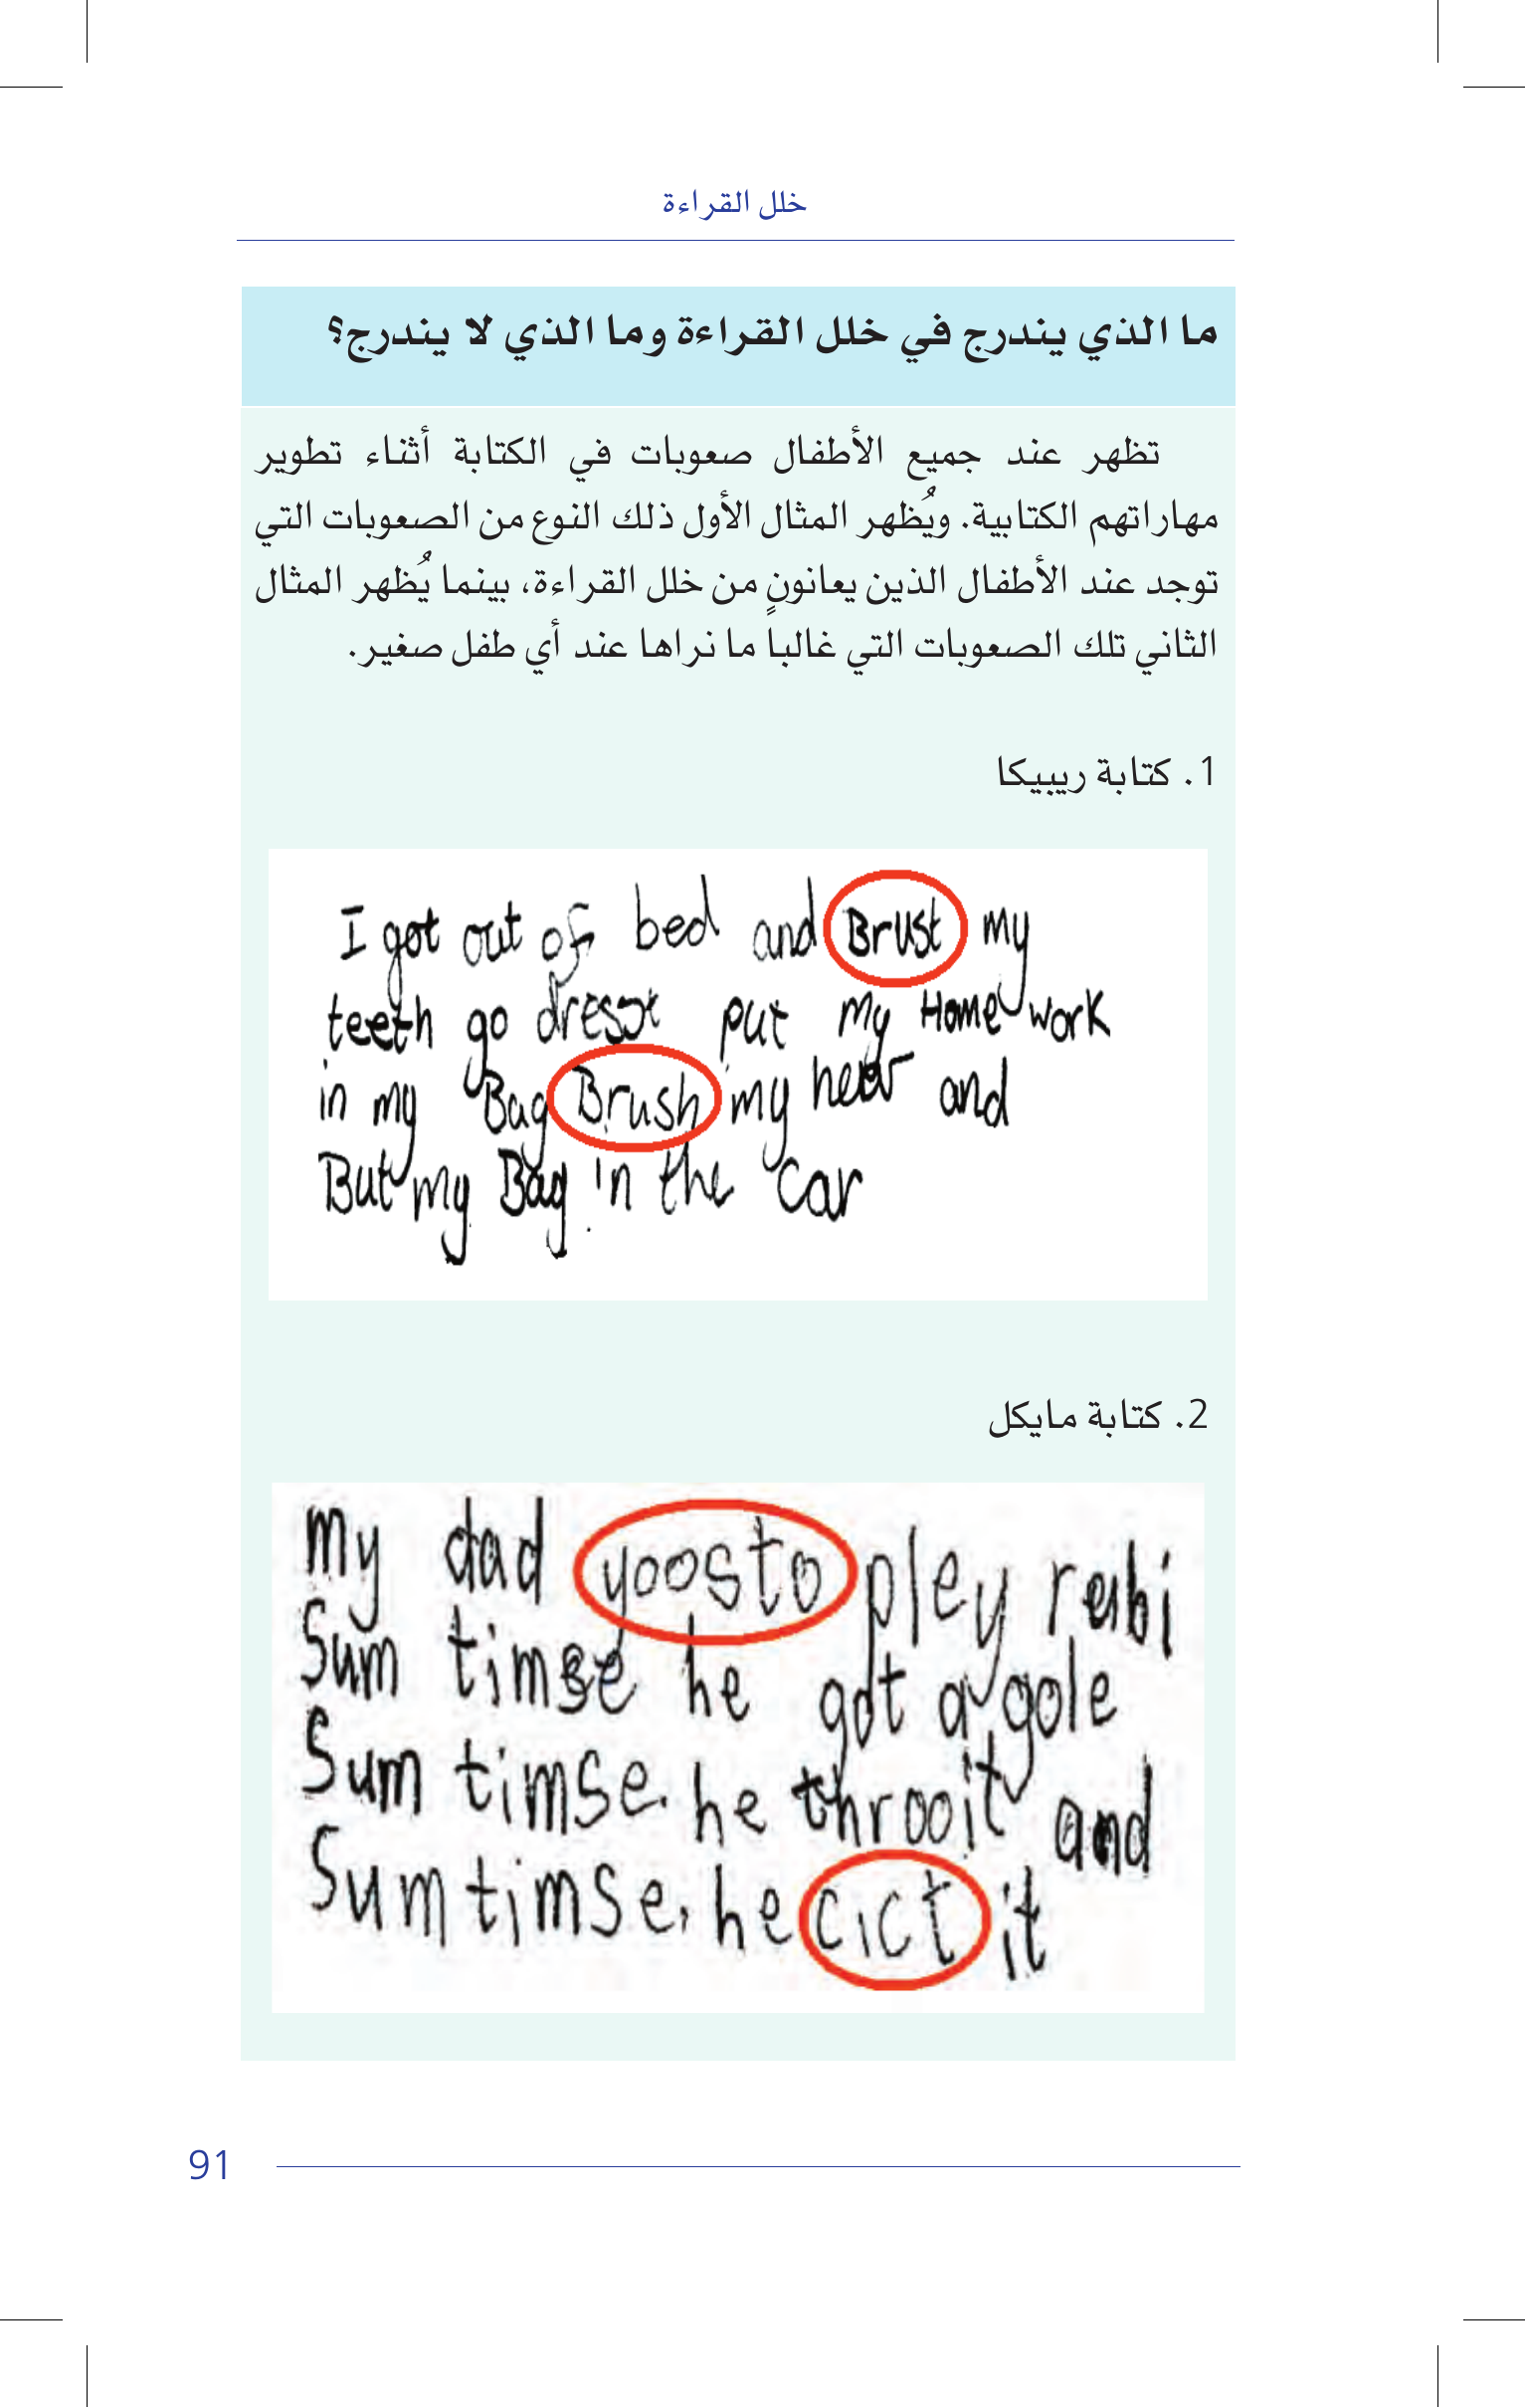 خلل القراءة
ما الذي يندرج في خلل القراءة وما الذي لا يندرج؟
تظهر عند جميع الأطفال صعوبات في الكتابة أثناء تطوير
مهاراتهم الكتابية. ويُظهر المثال الأول ذلك النوع من الصعوبات التي
توجد عند الأطفال الذين يعانون من خلل القراءة، بينما يُظهر المثال
الثاني تلك الصعوبات التي غالباً ما نراها عند أي طفل صغير.
1. كتابة ريبيكا
I got out of bed and Brust my
teeth go dresst put my Home work
in my Bag Brush my and
But my Bag in the car
2. كتابة مايكل
my dad yoosto pley
Sum timse he got a gole
Sum timse. he throoit and
Sumtimse, he cict it
91